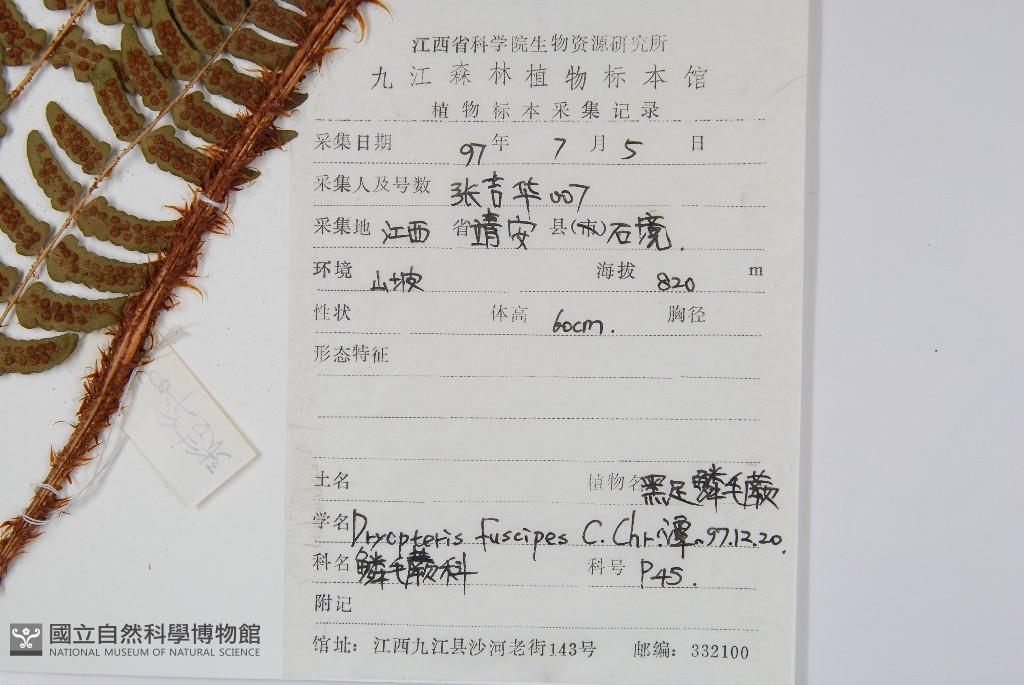 江西省科学院生物资源研究所
九江森林植物标本馆
植物标本采集记录
采集日期 97年 7月5 日
采集人及号数 张吉华007
采集地 江西 省靖安 县(市)石境.
环境 山坡 海拔 820 m
性状 体高 60cm. 胸径
形态特征
土名 植物名黑足鳞毛蕨
学名Dryopteris fuscipes C. Chr. 谭.97.12.20.
科名鳞毛蕨科 科号 P45.
附记
馆址: 江西九江县沙河老街143号 邮编: 332100
國立自然科學博物館
NATIONAL MUSEUM OF NATURAL SCIENCE